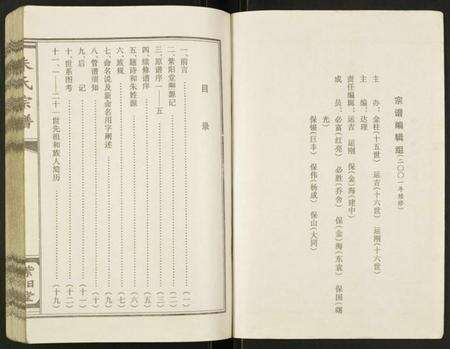 宗谱编辑组(二〇〇一年续修)
主办：金柱(十五世) 运吉(十六世) 运刚(十六世)
主编：达理
责任编辑：运吉 运刚 保(金)海(建中)
成员：必富(红亮) 必胜(乔舍) 保(金)海(东袁) 保国(曙光)
保顿(巨丰) 保伟(杨成) 保山(大同)
目录
一、前言……(一)
二、紫阳堂溯源记……(二)
三、原谱序一——五……(三)
四、续修谱序……(五)
五、题诗和朱姓源……(六)
六、族规……(七)
七、命名说及嵌命名用字阐述……(九)
八、管谱须知……(十)
九、后记……(十一)
十、世系图考……(十二)
十一、一——二十一世先祖和族人简历……(十九)
朱氏宗谱
紫阳堂